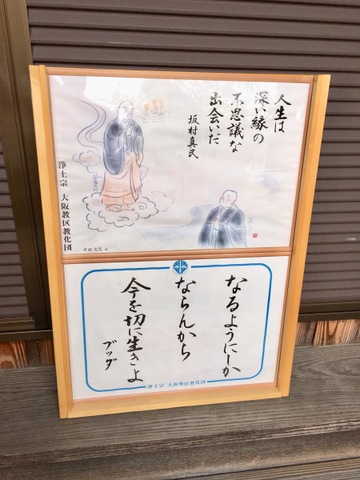 人生は
深い縁の
不思議な
出会いだ
坂村真民
浄土宗 大阪教区教化団
なるようにしか
ならんから
今を切に生きよ
ブッダ
浄土宗 大阪教区教化団